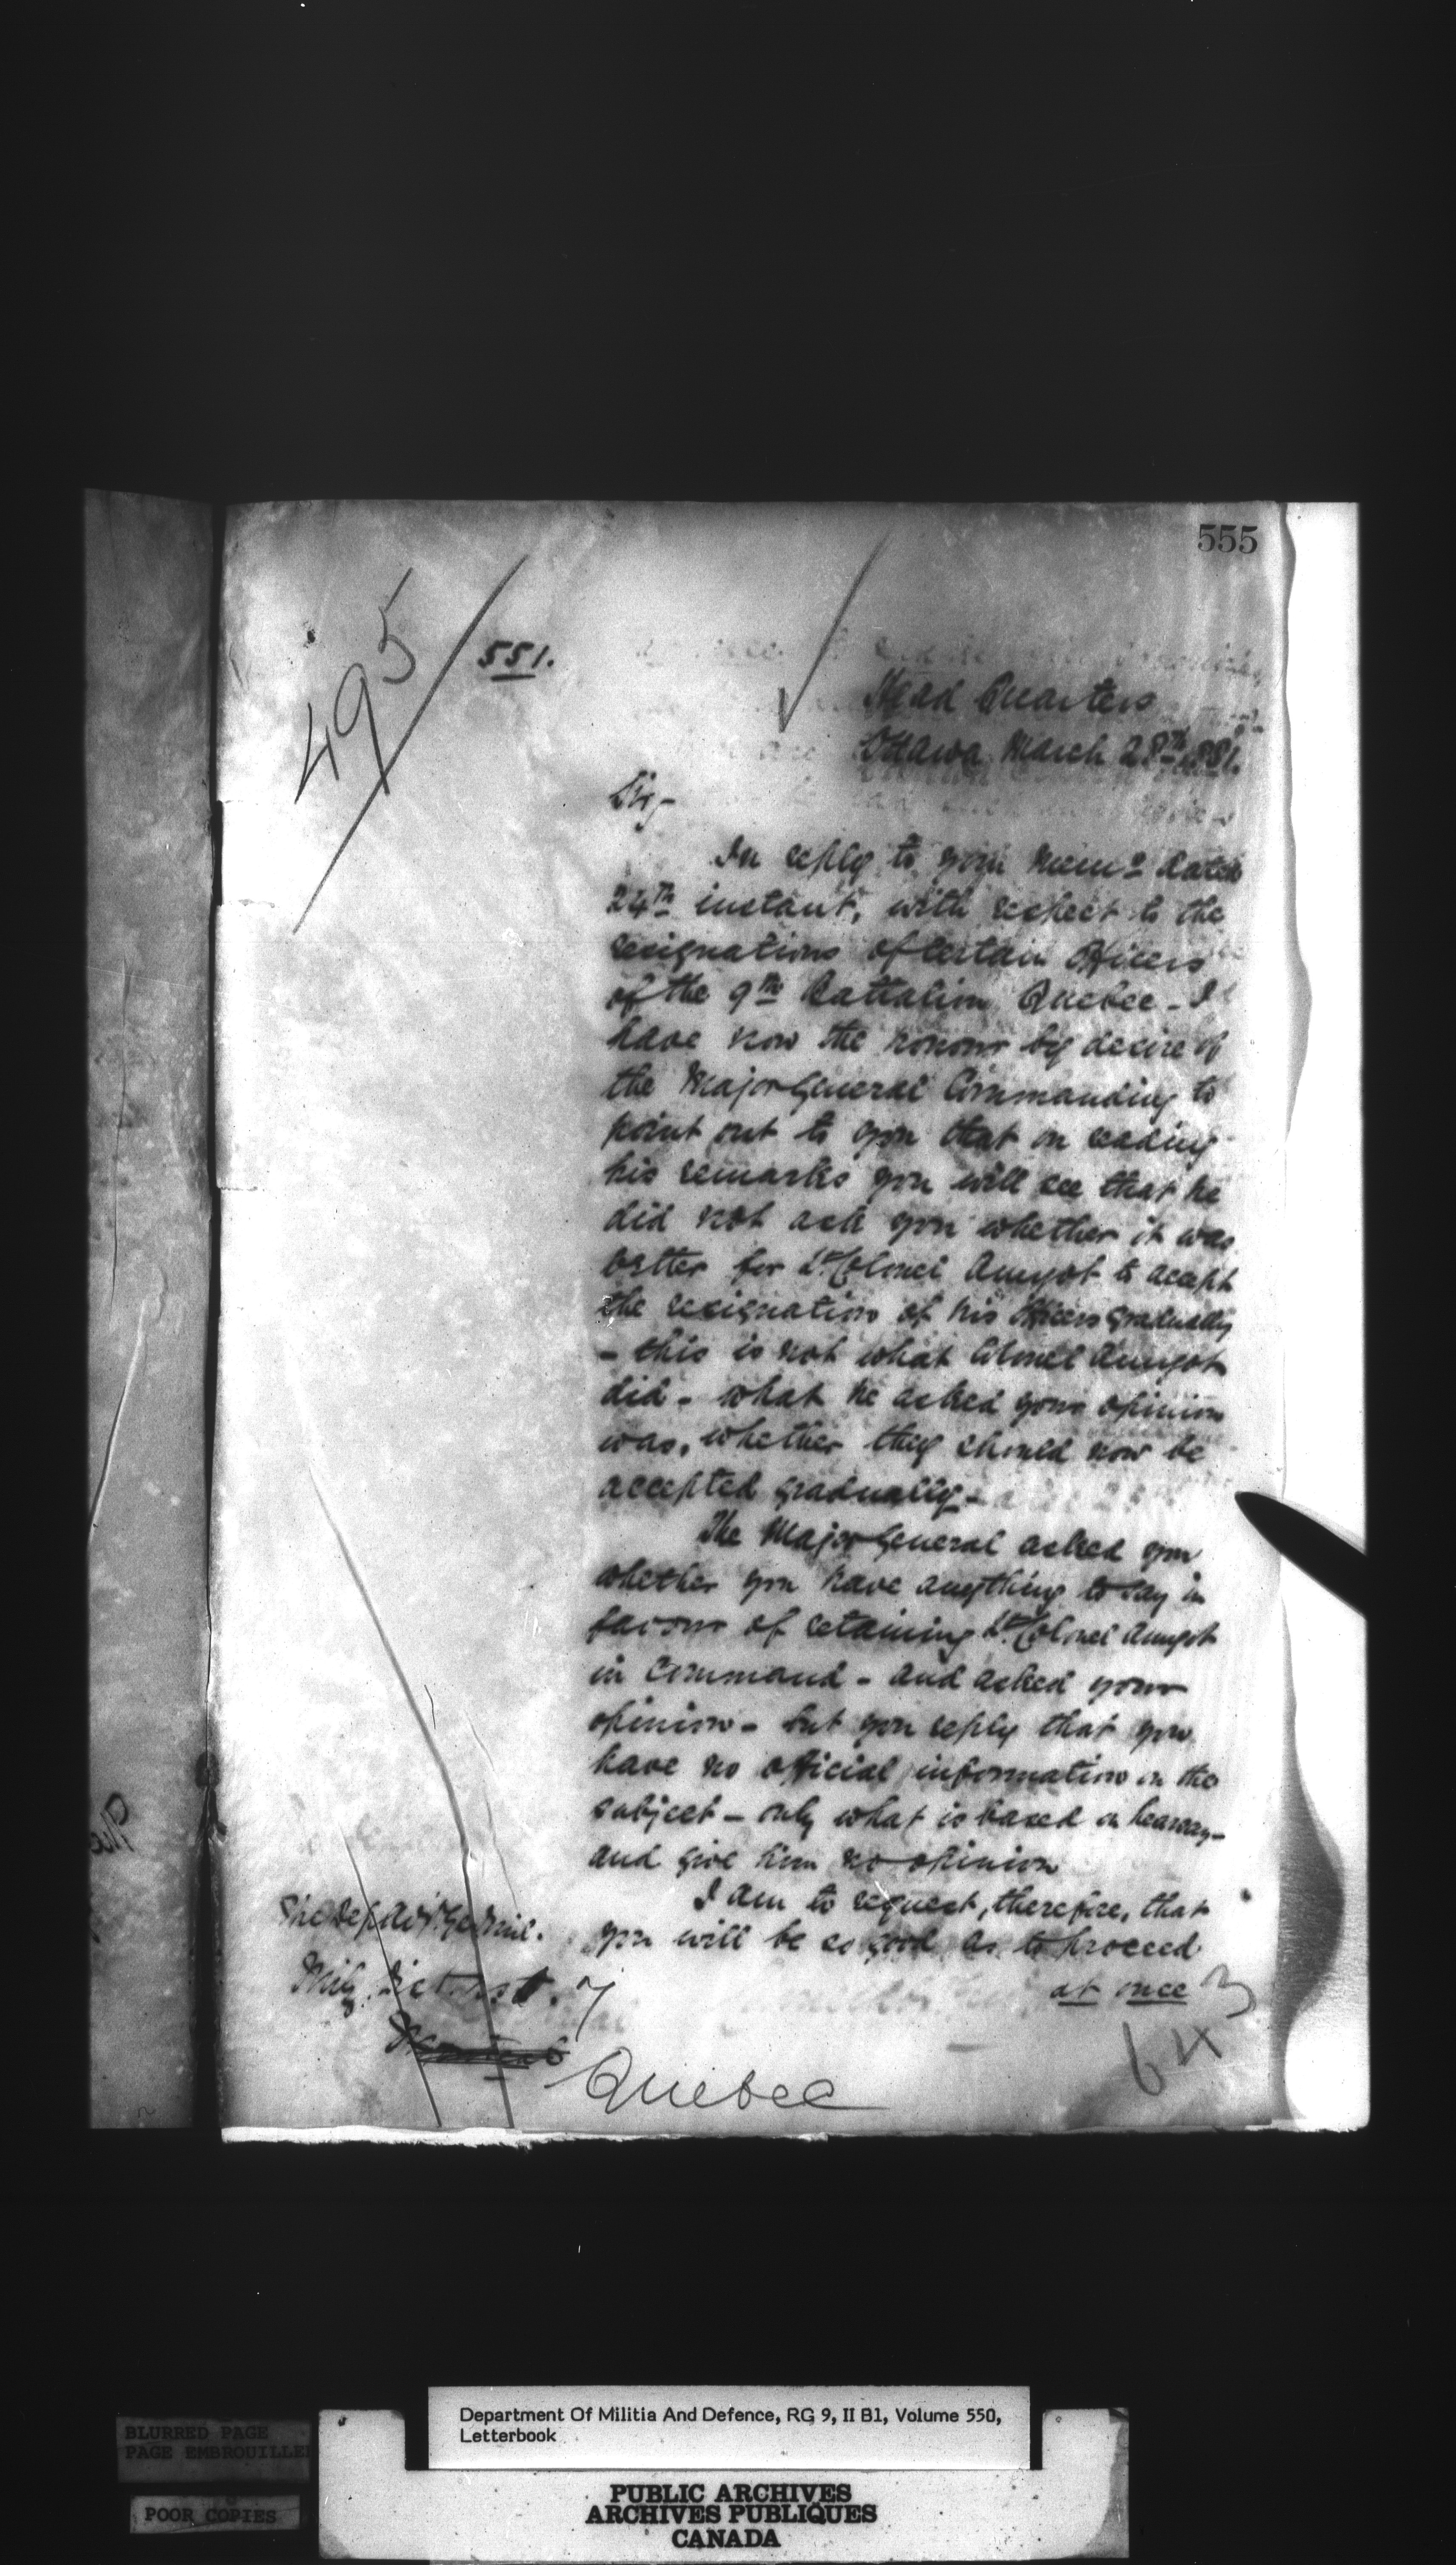 555
495
551.
Head Quarters
Ottawa March 28th 1881.
Sir,-
In reply to your Memo dated
24th instant, with respect to the
resignations of certain Officers
of the 9th Battalion Quebec - I
have now the honour by desire of
the Major General Commanding to
point out to you that on reading
his remarks you will see that he
did not ask you whether it was
better for Lt. Colonel Amyot to accept
the resignation of his Officers gradually
- this is not what Colonel Amyot
did - what he asked your opinion
was, whether they should now be
accepted gradually -
The Major General asked you
whether you have anything to say in
favour of retaining Lt. Colonel Amyot
in Command - and asked your
opinion - but you reply that you
have no official information on the
subject - only what is based on hearsay -
and give him no opinion
I am to request, therefore, that
you will be so good as to proceed
at once
The Dep. Adjt. Genl. Mil.
Mily. District. 7
Quebec
643
The
Department Of Militia And Defence, RG 9, II B1, Volume 550,
Letterbook
BLURRED PAGE
PAGE EMBROUILLEE
POOR COPIES
PUBLIC ARCHIVES
ARCHIVES PUBLIQUES
CANADA